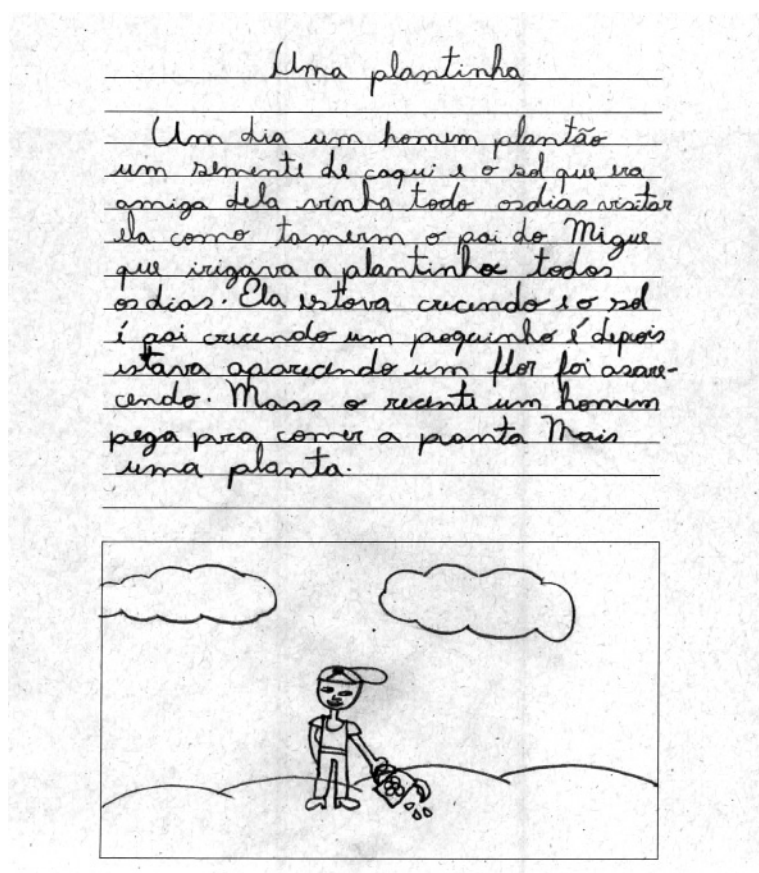 Uma plantinha
Um dia um homem plantão
um semente de caqui e o sol que era
amiga dela vinha todo osdias visitar
ela como tamerm o pai do Migue
que irigava a plantinha todos
os dias. Ela estava crecendo e o sol
é pai crecendo um poquinho é depois
estava aparecendo um flor foi asare-
cendo. Mass o recente um homem
pega pra comer a pranta Mais
uma planta.